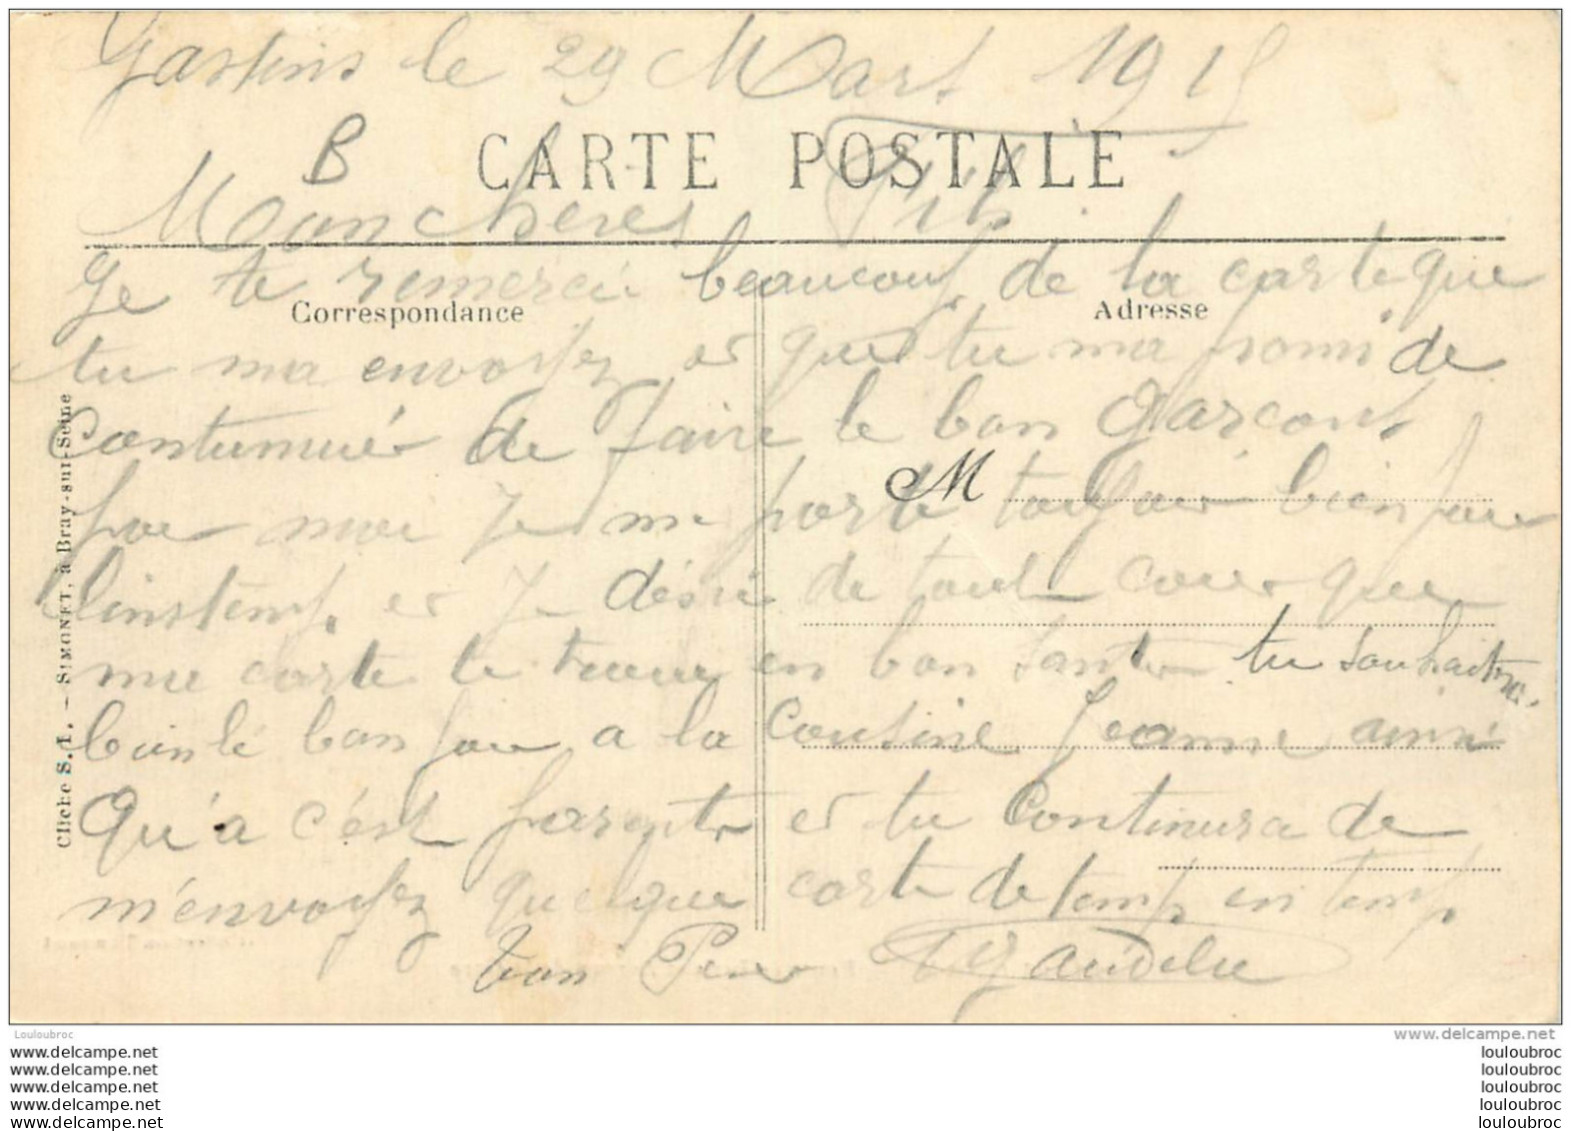 Gastins le 29 Mars 1915
B
CARTE POSTALE
Mon cheres Fils
Je te remercie beaucoup de la carte que
Correspondance
Adresse
tu ma envoyez et que tu ma promi de
Contunuié de faire le bon Garcons
M
pour moi je me porte toujour bien pour
linstemp et je désire de tout coeur que
ma carte te trouve en bon santer tu souhaitra
bien le bonjour a la Cousine Jeanne ainsi
Qu'a c'est parentr et tu Continura de
m'envoyez quelque carte de temp en temp
Ton Pere Gaudelu
Cliché S. I. — SIMONET, à Bray-sur-Seine
Louloubroc
www.delcampe.net
www.delcampe.net
louloubroc
www.delcampe.net
louloubroc
www.delcampe.net
louloubroc
www.delcampe.net
louloubroc
www.delcampe.net
louloubroc